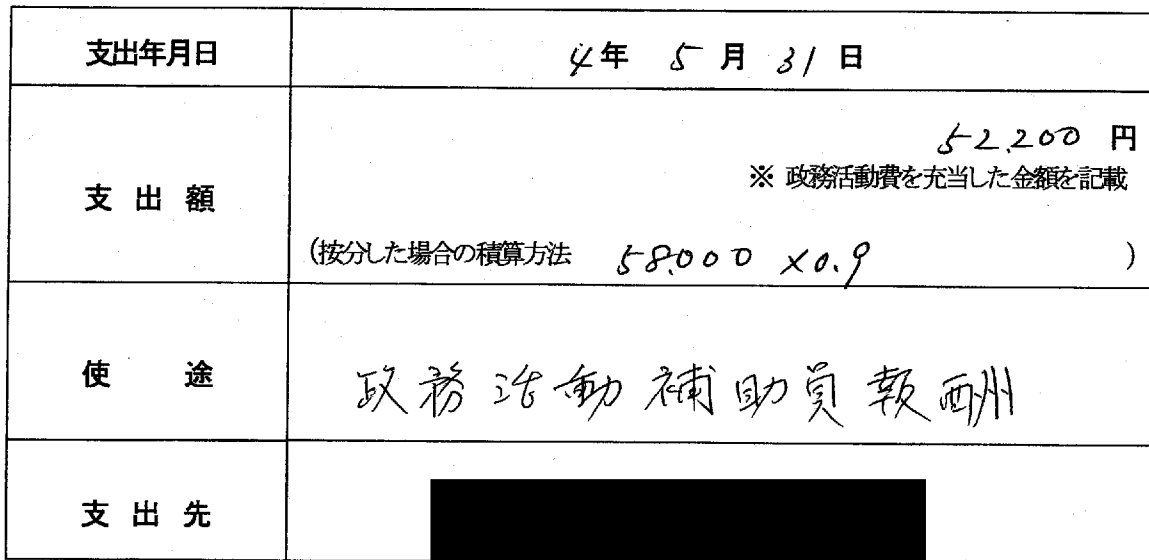 支出年月日 4年 5月 31日
52,200 円
※ 政務活動費を充当した金額を記載
支出額
(按分した場合の積算方法 58,000 ×0.9 )
使途 政務活動補助員報酬
支出先